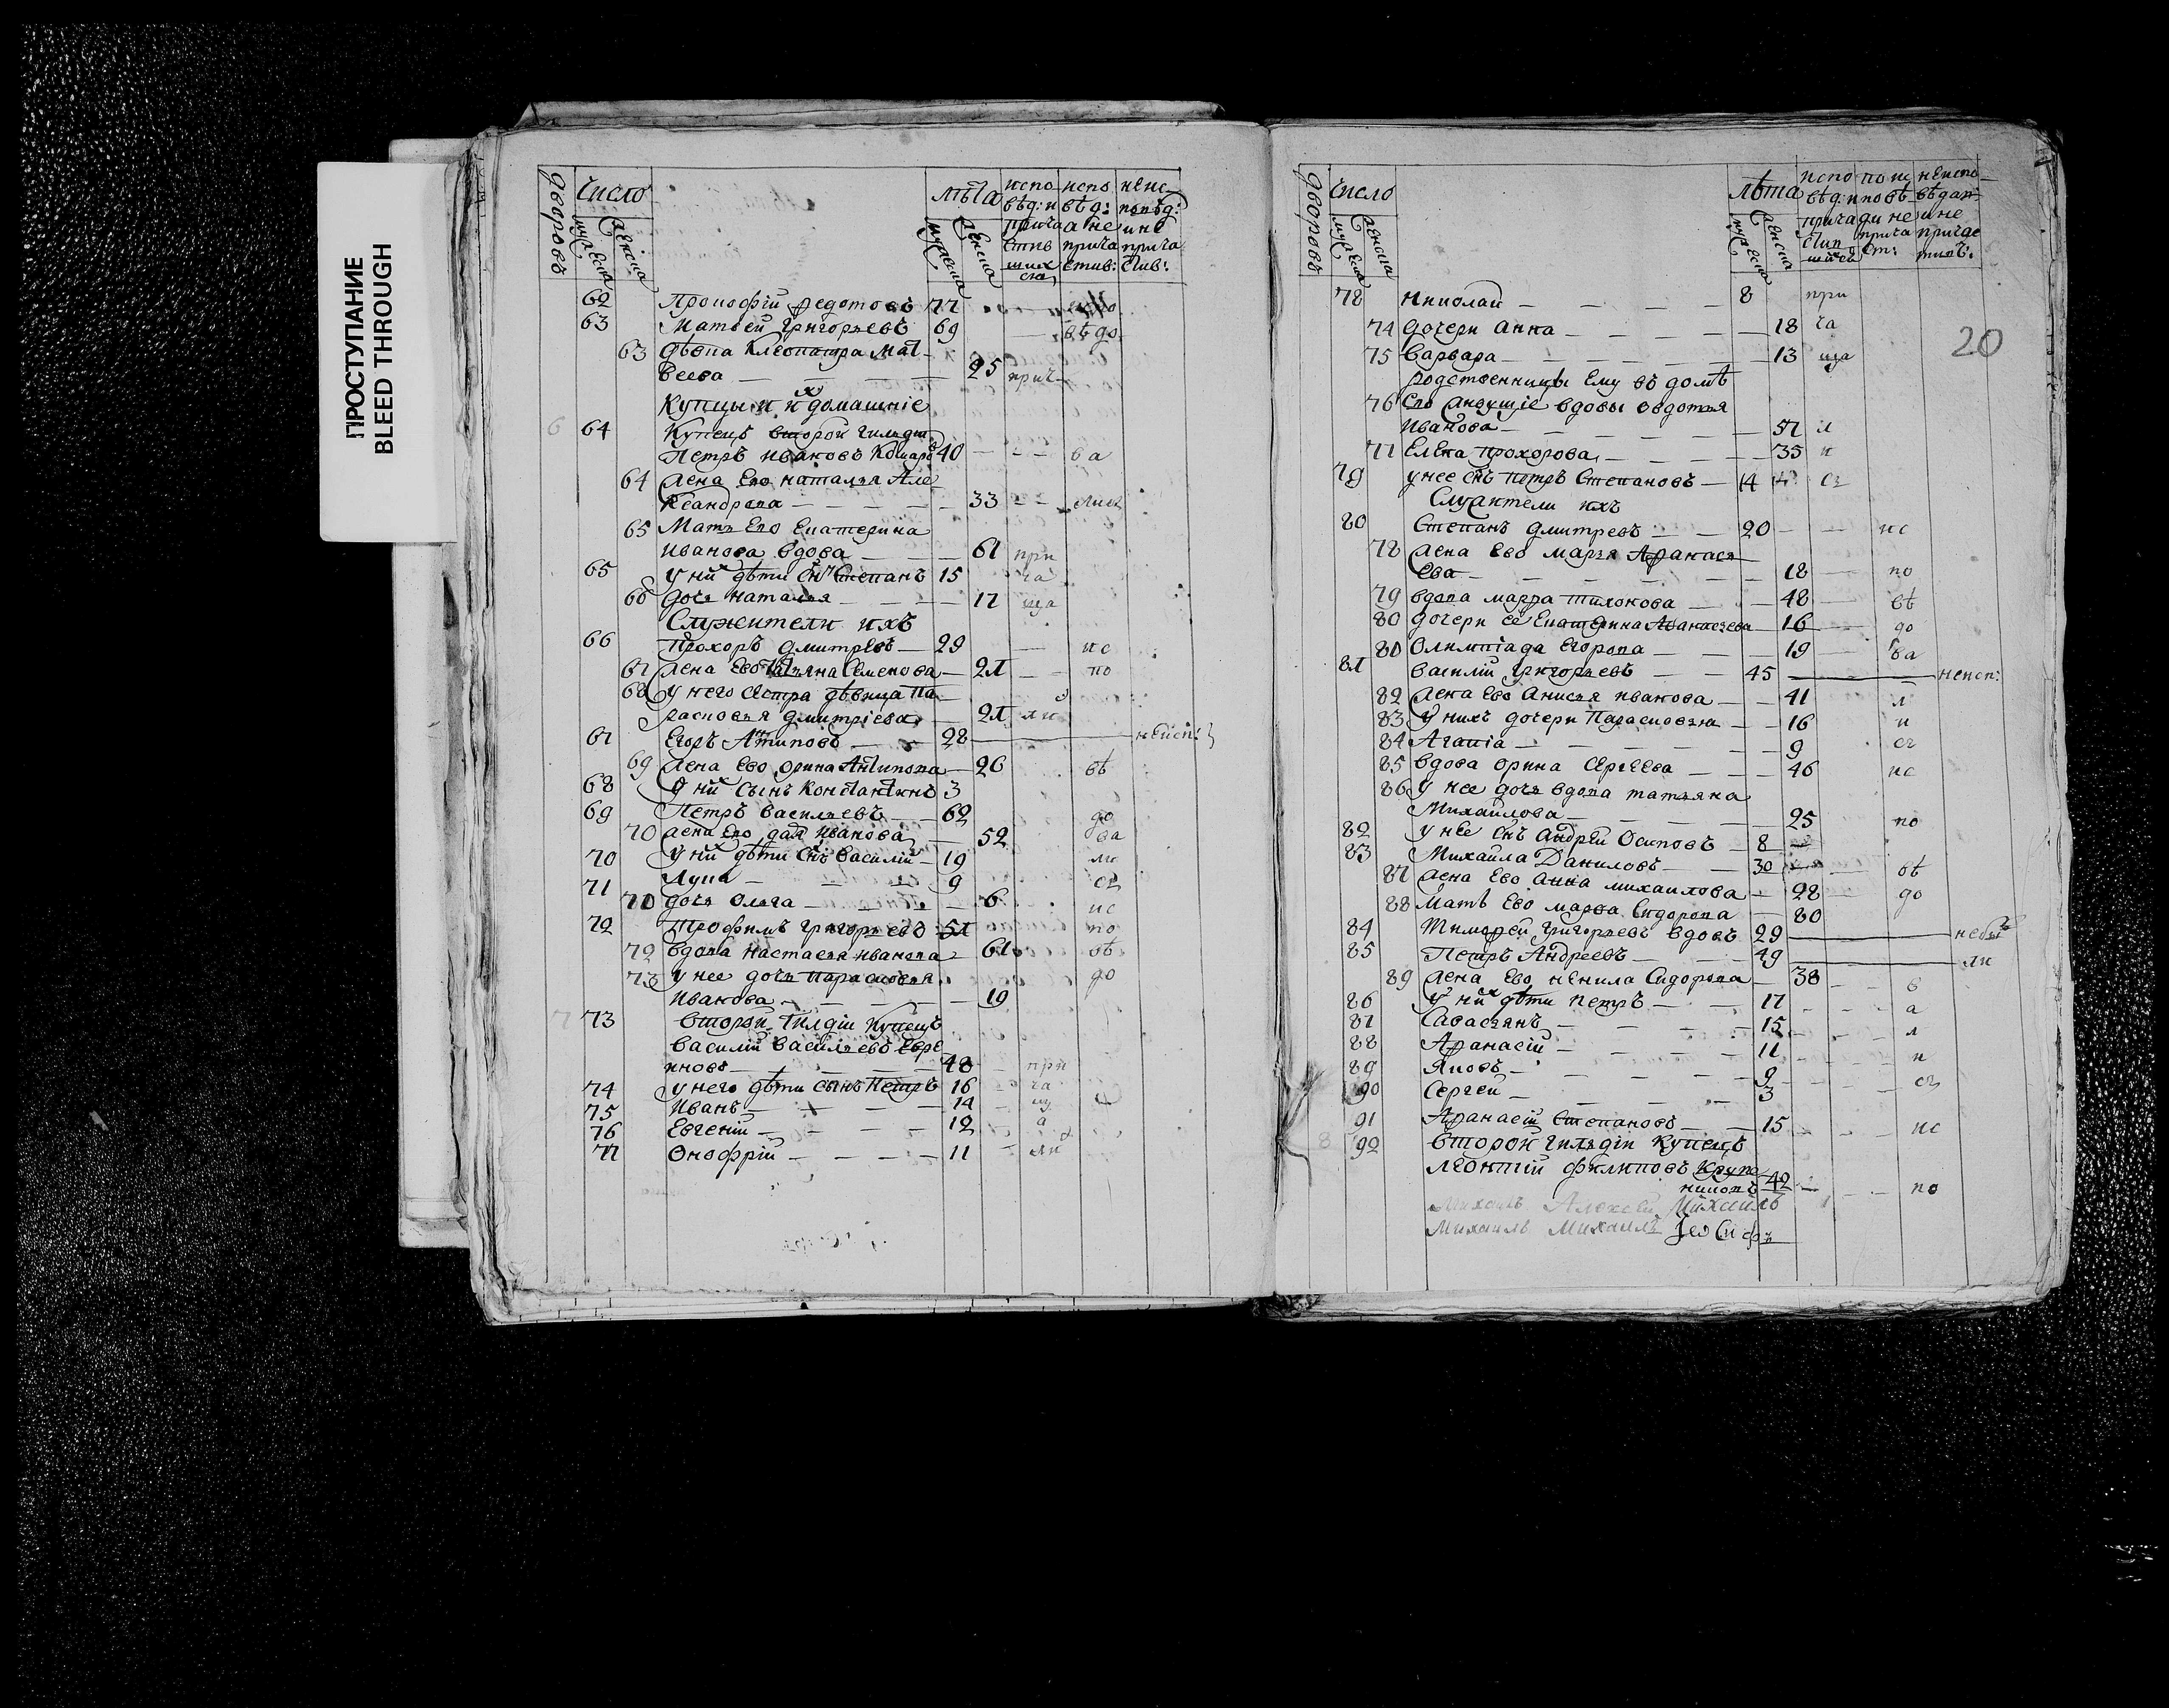 ПРОСТУПАНИЕ
BLEED THROUGH
дворовъ
число
мужеска
женска
лѣта
мужеска
женска
испо испо неис
вѣд: и вѣд: повѣд:
прича а не и не
стив прича прича
шихся стив: стив:
62 Прокофій Федотовъ 77
63 Матвей Григорьевъ 69 вѣ до
63 дѣвка Клеопатра Мат
веева 25 прич
Купцы и их домашніе
6 64 Купецъ второй гильдіи
Петръ Ивановъ 40 ва
64 жена Ево Наталья Але
ксандрова 33
65 Мать Ево Екатерина
Иванова вдова 61 при
65 у них дѣти снъ Степанъ 15 ча
66 дочь Наталья 17 ща
Служители ихъ
66 Прохоръ Дмитревъ 29 ис
67 жена Ево Татьяна Семенова 21 по
68 у него сестра дѣвица Па
расковья Дмитріева 21 ли
67 Егоръ Антиповъ 28 неисп:
69 жена Ево Орина Антипова 26 вѣ
68 у них сынъ Константинъ 3
69 Петръ Васильевъ 62 до
70 жена Ево Иванова 52 ва
70 у них дѣти снъ Василій 19 ли
71 Лука 9 сь
71 дочь Ольга 6 ис
72 Трофимъ Григорьевъ 51 по
72 вдова Настасья Иванова 61 вѣ
73 у нее дочь Парасковья до
Иванова 19
7 73 второй гилдіи купецъ
Василій Васильевъ Евре
иновъ 48 при
74 у него дѣти сынъ Петръ 16 ча
75 Иванъ 14 щ
76 Евгеній 12 а
77 Онофрій 11 ли
20
дворовъ
число
мужеска
женска
лѣта
мужеска
женска
испо по ис неиспо
вѣд: и повѣ вѣдан
прича ди не и не
стив прича причас
шихся ст: тив:
78 Николай 8 при
74 дочери Анна 18 ча
75 Варвара 13 ща
родственницы Ему въ домѣ
76 Ево живущіе вдовы Овдотья
Иванова 57 л
77 Елена Прохорова 35 и
79 у нее снъ Петръ Степановъ 14 сь
Служители ихъ
80 Степанъ Дмитревъ 20 ис
78 жена Ево Марья Афанась
ева 18 по
79 вдова Марфа Тихонова 48 вѣ
80 дочери её Екатерина Афанасьева 16 до
80 Олимпіада Егорова 19 ва
81 Василій Григорьевъ 45 неисп:
82 жена Ево Анисья Иванова 41 л
83 у нихъ дочери Парасковья 16 и
84 Агапіа 9 сь
85 вдова Орина Сергеева 46 ис
86 у нее дочь вдова Татьяна
Михайлова 25 по
82 у нее снъ Андрей Осиповъ 8
83 Михайла Даниловъ 30 вѣ
87 жена Ево Анна Михайлова 28 до
88 Мать Ево Марфа Сидорова 80
84 Тимофей Григорьевъ вдовъ 29
85 Петръ Андреевъ 49 ли
89 жена Ево Ненила Сидорова 38 в
86 у них дѣти Петръ 17 а
87 Савасьянъ 15 л
88 Афанасій 11 и
89 Яковъ 9 сь
90 Сергей 3
91 Афанасій Степановъ 15 ис
8 92 второй гильдіи купецъ
Леонтій Филиповъ Крупе
никовъ 42 по
Михаилъ Алексей Михаилъ
Михаилъ Михаилъ